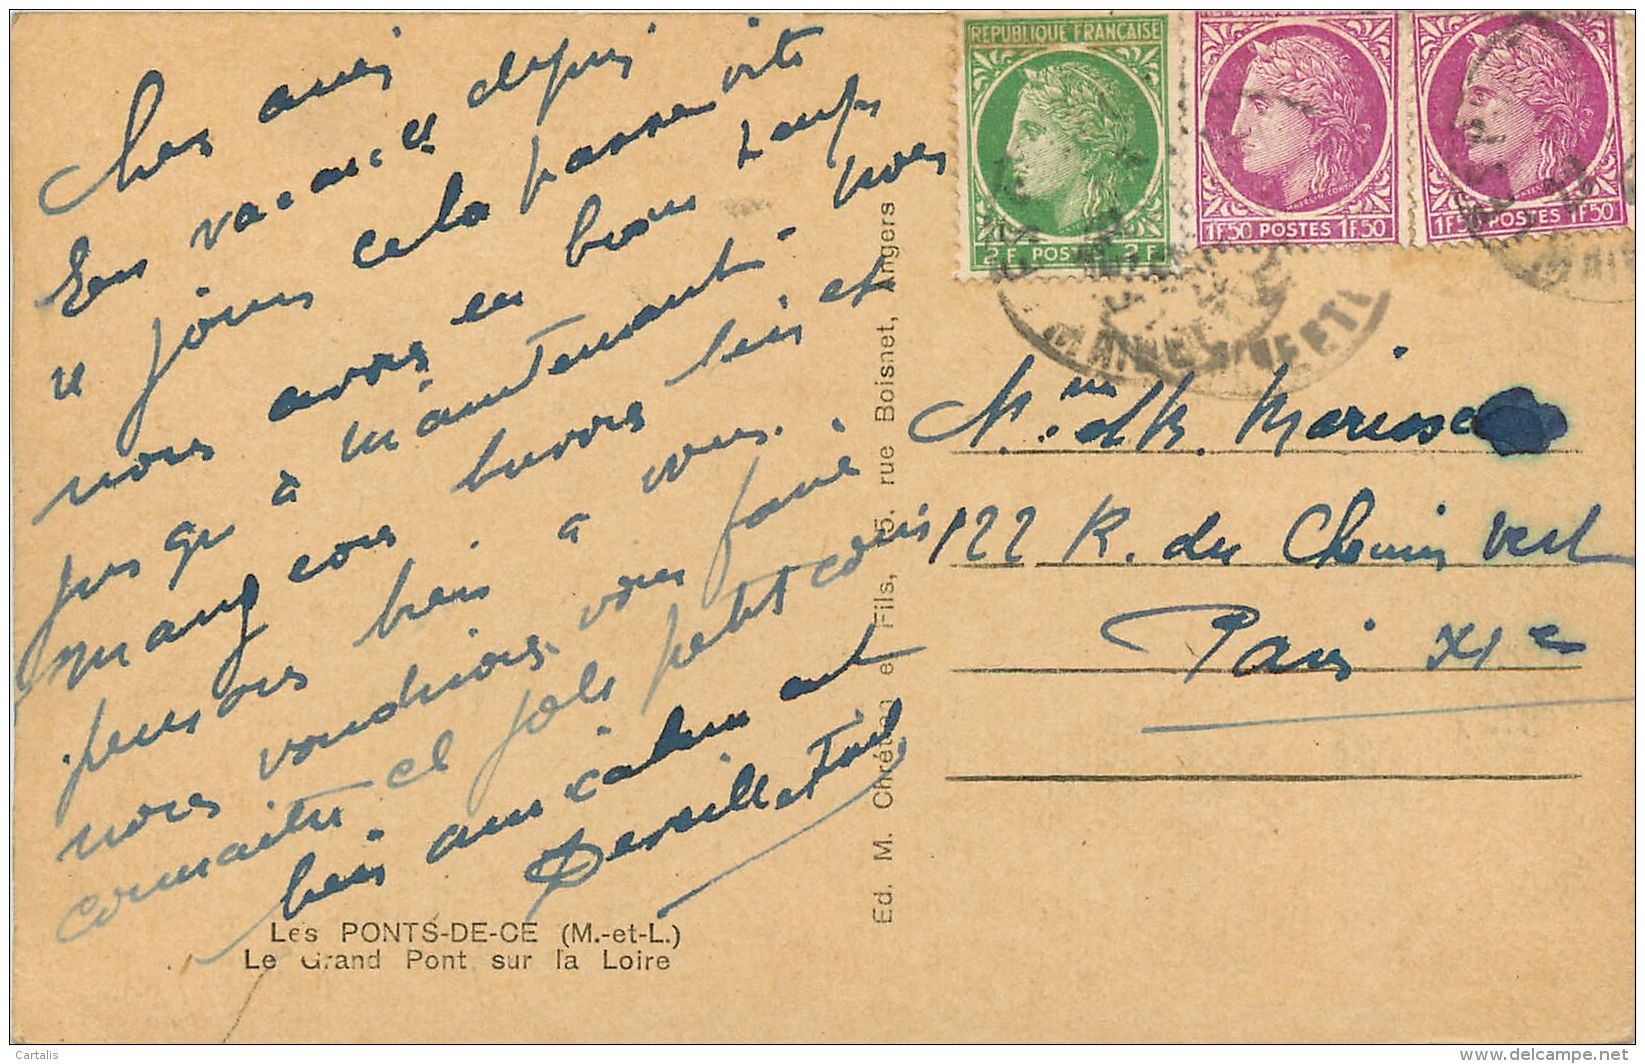 Chers amis
En vacances depuis
11 jours cela passe vite
nous avons eu bon temps
jusqu'à maintenant. nous
mangeons buvons bien et
pensons bien à vous.
nous voudrions vous faire
connaitre ce joli petit coin
bien amicalement
Les PONTS-DE-CE (M.-et-L.)
Le Grand Pont sur la Loire
Ed. M. Chrétien et Fils, 5, rue Boisnet, Angers
REPUBLIQUE FRANÇAISE
2F POSTES 2F
1F50 POSTES 1F50
1F50 POSTES 1F50
122 R. du Chemin Vert
Paris XIe
Cartalis
www.delcampe.net